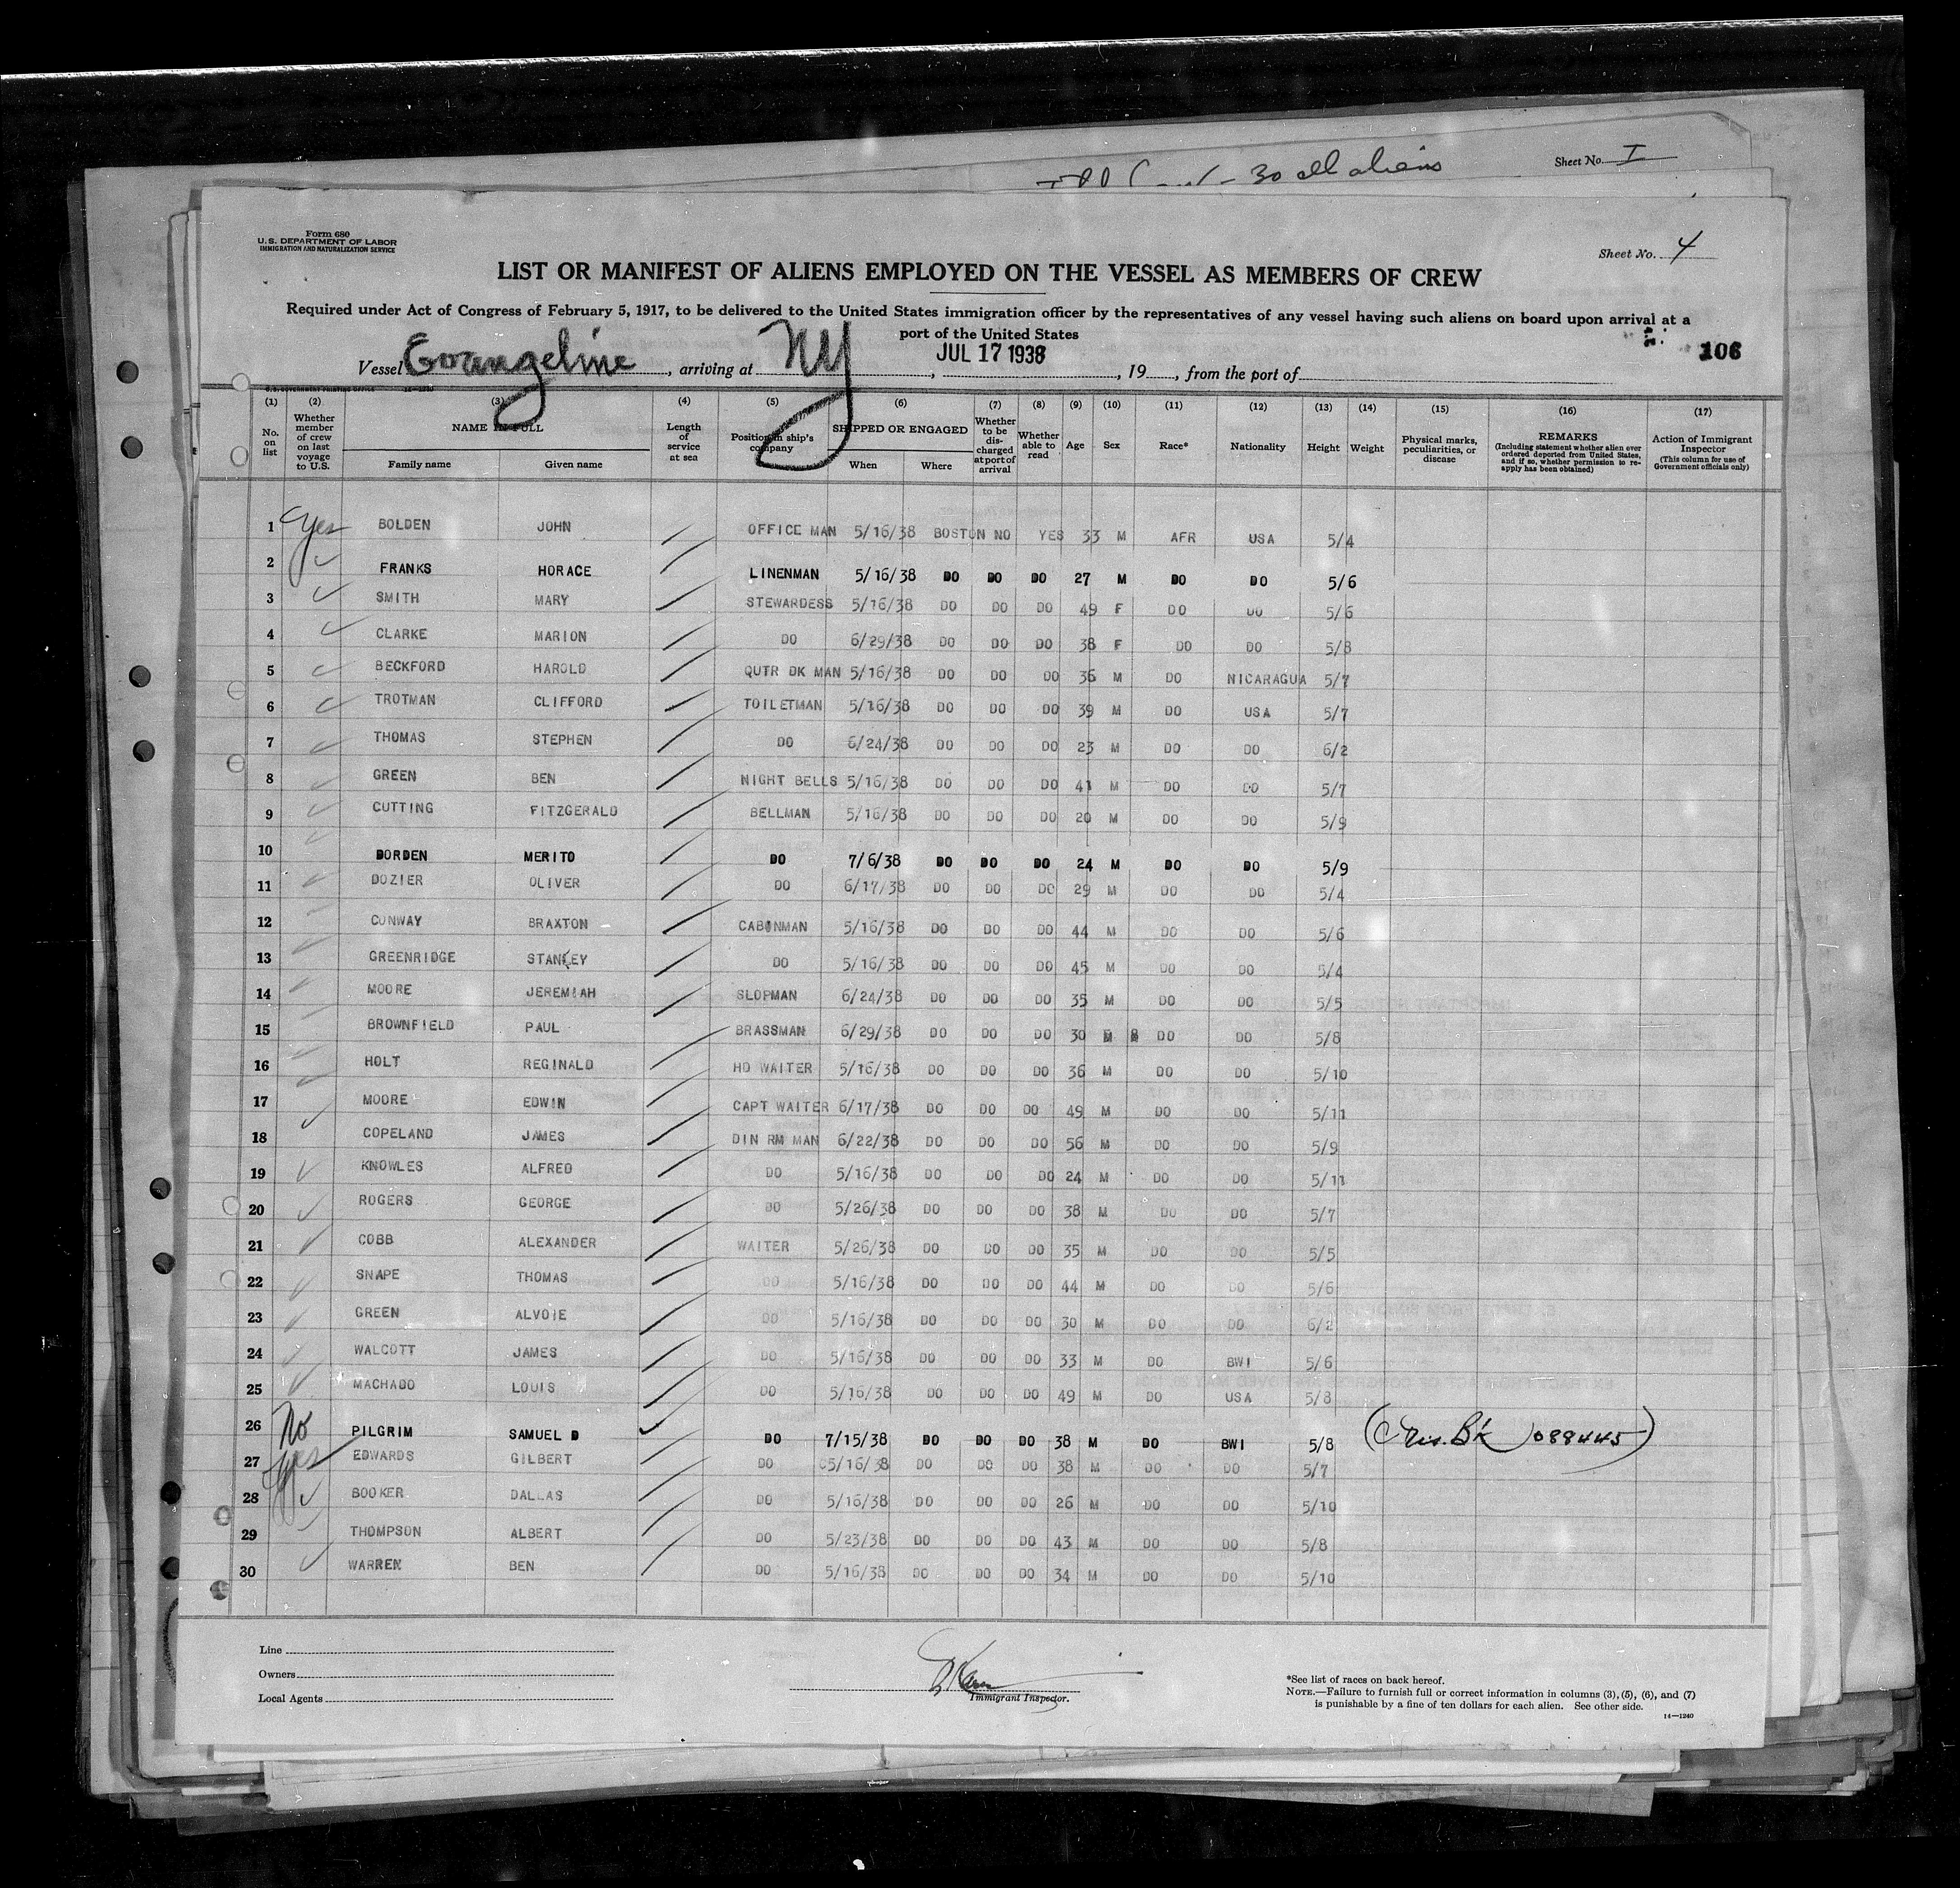 30 all aliens
Sheet No. I
Form 680
U.S. DEPARTMENT OF LABOR
IMMIGRATION AND NATURALIZATION SERVICE
Sheet No. 4
LIST OR MANIFEST OF ALIENS EMPLOYED ON THE VESSEL AS MEMBERS OF CREW
Required under Act of Congress of February 5, 1917, to be delivered to the United States immigration officer by the representatives of any vessel having such aliens on board upon arrival at a
port of the United States
106
Vessel Evangeline, arriving at NY, JUL 17 1938, 19, from the port of
(1) (2) (3) (4) (5) (6) (7) (8) (9) (10) (11) (12) (13) (14) (15) (16) (17)
No. on list
Whether member of crew on last voyage to U.S.
NAME IN FULL
Family name
Given name
Length of service at sea
Position in ship's company
SHIPPED OR ENGAGED
When
Where
Whether to be discharged at port of arrival
Whether able to read
Age
Sex
Race*
Nationality
Height
Weight
Physical marks, peculiarities, or disease
REMARKS
(Including statement whether alien ever ordered deported from United States, and if so, whether permission to reapply has been obtained)
Action of Immigrant Inspector
(This column for use of Government officials only)
1 Yes BOLDEN JOHN OFFICE MAN 5/16/38 BOSTON NO YES 33 M AFR USA 5/4
2 FRANKS HORACE LINENMAN 5/16/38 DO DO DO 27 M DO DO 5/6
3 SMITH MARY STEWARDESS 5/16/38 DO DO DO 49 F DO DO 5/6
4 CLARKE MARION DO 6/29/38 DO DO DO 38 F DO DO 5/8
5 BECKFORD HAROLD QUTR DK MAN 5/16/38 DO DO DO 36 M DO NICARAGUA 5/7
6 TROTMAN CLIFFORD TOILETMAN 5/16/38 DO DO DO 39 M DO USA 5/7
7 THOMAS STEPHEN DO 6/24/38 DO DO DO 23 M DO DO 6/2
8 GREEN BEN NIGHT BELLS 5/16/38 DO DO DO 41 M DO DO 5/7
9 CUTTING FITZGERALD BELLMAN 5/16/38 DO DO DO 20 M DO DO 5/9
10 DORDEN MERITO DO 7/6/38 DO DO DO 24 M DO DO 5/9
11 DOZIER OLIVER DO 6/17/38 DO DO DO 29 M DO DO 5/4
12 CONWAY BRAXTON CABINMAN 5/16/38 DO DO DO 44 M DO DO 5/6
13 GREENRIDGE STANLEY DO 5/16/38 DO DO DO 45 M DO DO 5/4
14 MOORE JEREMIAH SLOPMAN 6/24/38 DO DO DO 35 M DO DO 5/5
15 BROWNFIELD PAUL BRASSMAN 6/29/38 DO DO DO 30 M DO DO 5/8
16 HOLT REGINALD HD WAITER 5/16/38 DO DO DO 36 M DO DO 5/10
17 MOORE EDWIN CAPT WAITER 6/17/38 DO DO DO 49 M DO DO 5/11
18 COPELAND JAMES DIN RM MAN 6/22/38 DO DO DO 56 M DO DO 5/9
19 KNOWLES ALFRED DO 5/16/38 DO DO DO 24 M DO DO 5/11
20 ROGERS GEORGE DO 5/26/38 DO DO DO 38 M DO DO 5/7
21 COBB ALEXANDER WAITER 5/26/38 DO DO DO 35 M DO DO 5/5
22 SNAPE THOMAS DO 5/16/38 DO DO DO 44 M DO DO 5/6
23 GREEN ALVOIE DO 5/16/38 DO DO DO 30 M DO DO 6/2
24 WALCOTT JAMES DO 5/16/38 DO DO DO 33 M DO BWI 5/6
25 MACHADO LOUIS DO 5/16/38 DO DO DO 49 M DO USA 5/8
26 No PILGRIM SAMUEL D DO 7/15/38 DO DO DO 38 M DO BWI 5/8 Bk 088445)
27 Yes EDWARDS GILBERT DO 5/16/38 DO DO DO 38 M DO DO 5/7
28 BOOKER DALLAS DO 5/16/38 DO DO DO 26 M DO DO 5/10
29 THOMPSON ALBERT DO 5/23/38 DO DO DO 43 M DO DO 5/8
30 WARREN BEN DO 5/16/38 DO DO DO 34 M DO DO 5/10
Line
Owners
Local Agents
Immigrant Inspector.
*See list of races on back hereof.
NOTE.—Failure to furnish full or correct information in columns (3), (5), (6), and (7)
is punishable by a fine of ten dollars for each alien. See other side.
14—1240